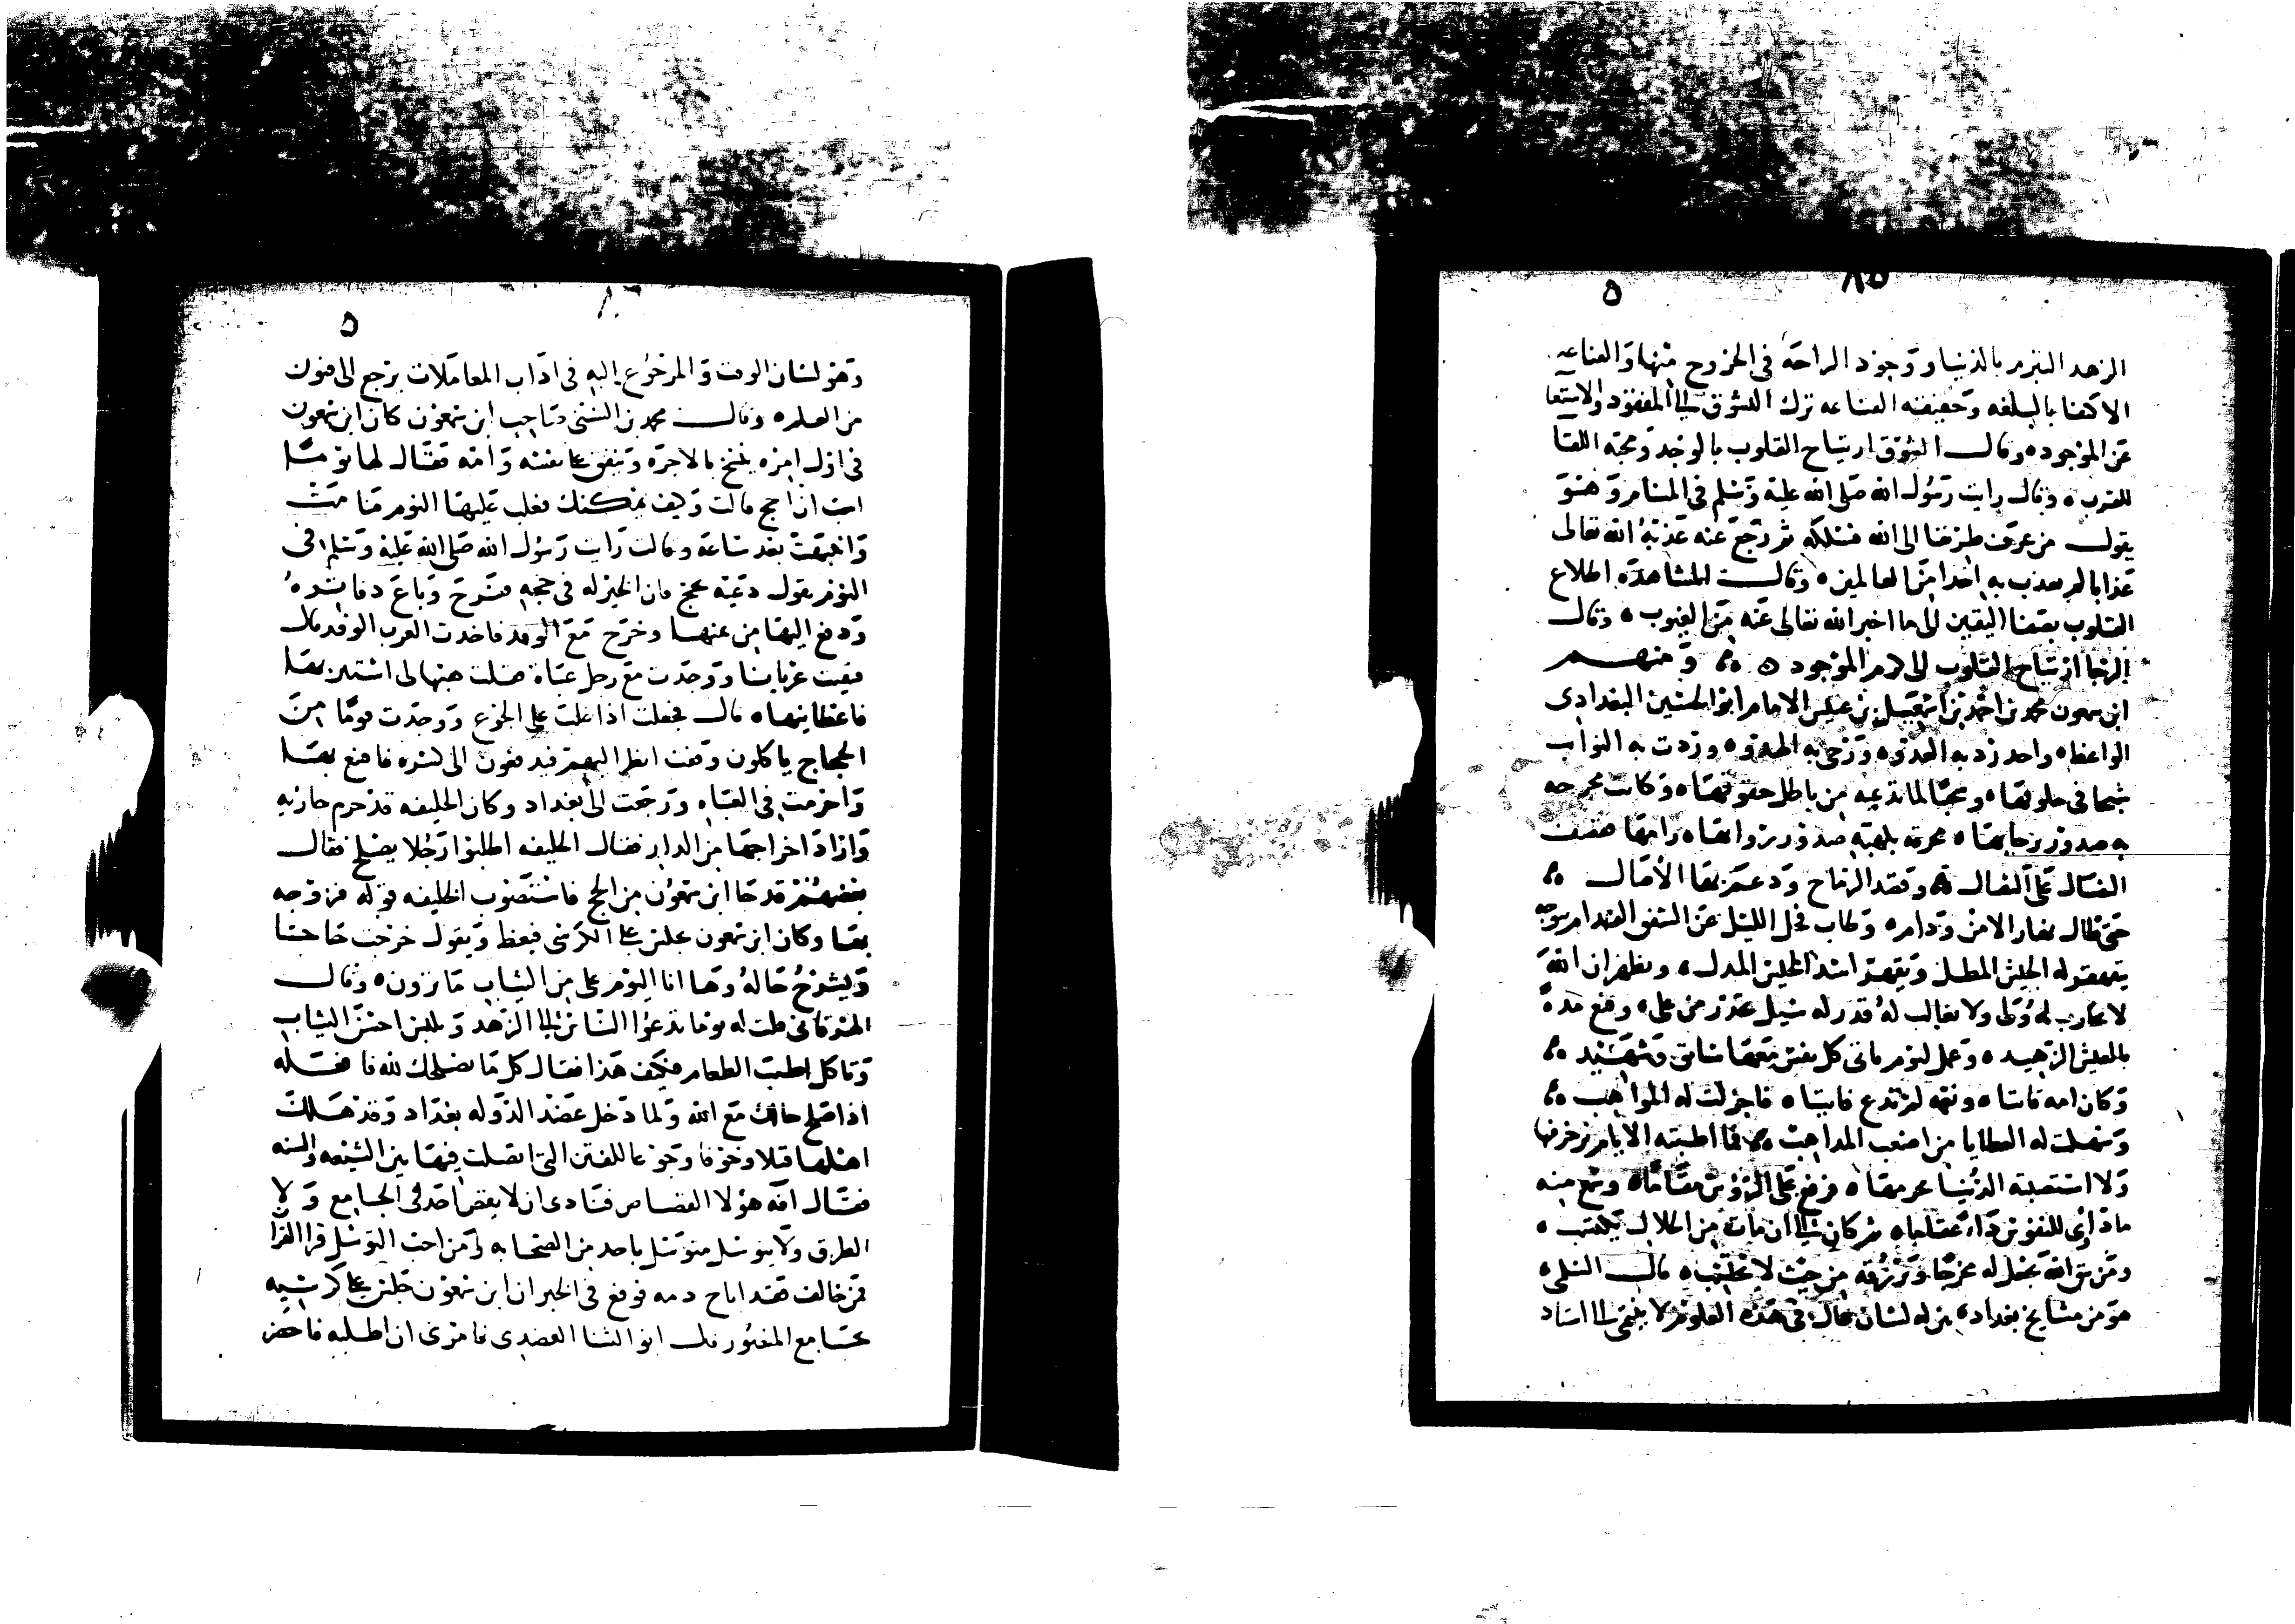 ٨٥
٥
الزهد التبرم بالدنيا ووجود الراحة في الخروج منها والقناعه
الاكتفا بالبلغه وحقيقته القناعه ترك التشوق الى المفقود والاستغنا
عن الموجود ٥ وقال الشوق ارتياح القلوب بالوجد ومحبة اللقا
للقرب ٥ وقال رايت رسول الله صلى الله عليه وسلم في المنام وهو
يقول من عرف طريقا الى الله فسلكه ثم رجع عنه عذبه الله تعالى
عذابا لم يعذب به احدا من العالمين ٥ وقال المشاهدة اطلاع
القلوب بصفا اليقين الى ما اخبر الله تعالى عنه من الغيوب ٥ وقال
الرجا ارتياح القلوب الى كرم الموجود ٥ ومنهم
ابن سمعون محمد بن احمد بن اسمعيل بن عيسى الامام ابو الحسين البغدادي
الواعظ ٥ واحد رد به العدو ٥ وردت به النواب
شجا في حلوقها ٥ لما تدعيه من باطل حقوقها ٥ وكانت محرجه
به صدور رحابها ٥
القتال على القتال وفقد الرماح ودعم بها الامال
حتى طال نهار الامن ودام ٥ وطاب
يتقهقر له الجيش المطل ويقهر اسد الخيس المدل ٥ ويظهر ان الله
لا يحارب له ولا يغالب له قدر له سيل من على ٥ وقنع مدة
بالعيش الزهيد ٥ وعمل ليوم ياتي كل نفس معها سائق وشهيد
وكان امه فاجزلت له المواهب
وسهلت له العطايا من اصعب المذاهب فما اطبته الايام بزخرفها
ولا استصبته الدنيا ٥ فرفع على الرؤس مقاما ٥ وسمع منه
ماداوى للنفوس داء عضلها ٥ ثم كان الى ان مات من الحلال يكتسب ٥
ومن يتق الله يجعل له مخرجا ويرزقه من حيث لا يحتسب ٥ قال السلمي ٥
هو من مشايخ بغداد ٥ له لسان عال في هذه العلوم لا ينتمي الى استاد
٥
وهو لسان الوقت والمرجوع اليه في اداب المعاملات يرجع الى فنون
من العلم ٥ وقال محمد بن السني صاحب ابن سمعون كان ابن سمعون
في اول امره ينسخ بالاجرة وينفق على نفسه وامه فقال لها يوما
احب ان احج قالت وكيف يمكنك فغلب عليها النوم فنامت
وانتبهت بعد ساعة وقالت رايت رسول الله صلى الله عليه وسلم في
النوم يقول دعيه يحج فان الخير له في حجه ففرح وباع دفاتره
ودفع اليها من ثمنها وخرج مع الوفد فاخذت العرب الوفد قال
فبقيت عريانا ووجدت مع رجل عباة فقلت هبها لي استتر بها
فاعطانيها ٥ قال فجعلت اذا غلب علي الجوع ووجدت قوما من
الحجاج ياكلون وقفت انظر اليهم فيدفعون الي كسره فاقنع بها
واحرمت في العباه ورجعت الى بغداد وكان الخليفه قد حرم جاريه
واراد اخراجها من الدار فقال الخليفه اطلبوا رجلا يصلح فقال
بعضهم قد جا ابن سمعون من الحج فاستصوب الخليفه قوله فزوجه
بها وكان ابن سمعون يجلس على الكرسي فيعظ ويقول خرجت حاجا
ويشرح حاله وها انا اليوم علي من الثياب ما ترون ٥ وقال
البرقاني قلت له يوما تدعوا الناس الى الزهد وتلبس احسن الثياب
وتاكل اطيب الطعام فكيف هذا فقال كل ما يصلحك لله فافعله
اذا صلح حالك مع الله ولما دخل عضد الدوله بغداد وقد هلك
اهلها قتلا وخوفا وجوعا للفتن التي اتصلت فيها بين الشيعه والسنه
فقال افة هؤلا القصاص فنادى ان لا يقص احد في الجامع ولا
الطرق ولا يتوسل متوسل باحد من الصحابه ومن احب التوسل قرا القران
فمن خالف فقد اباح دمه فوقع في الخبر ان ابن سمعون جلس على كرسيه
بجامع المنصور قال ابو الثنا العضدي فامرني ان اطلبه فاحضر